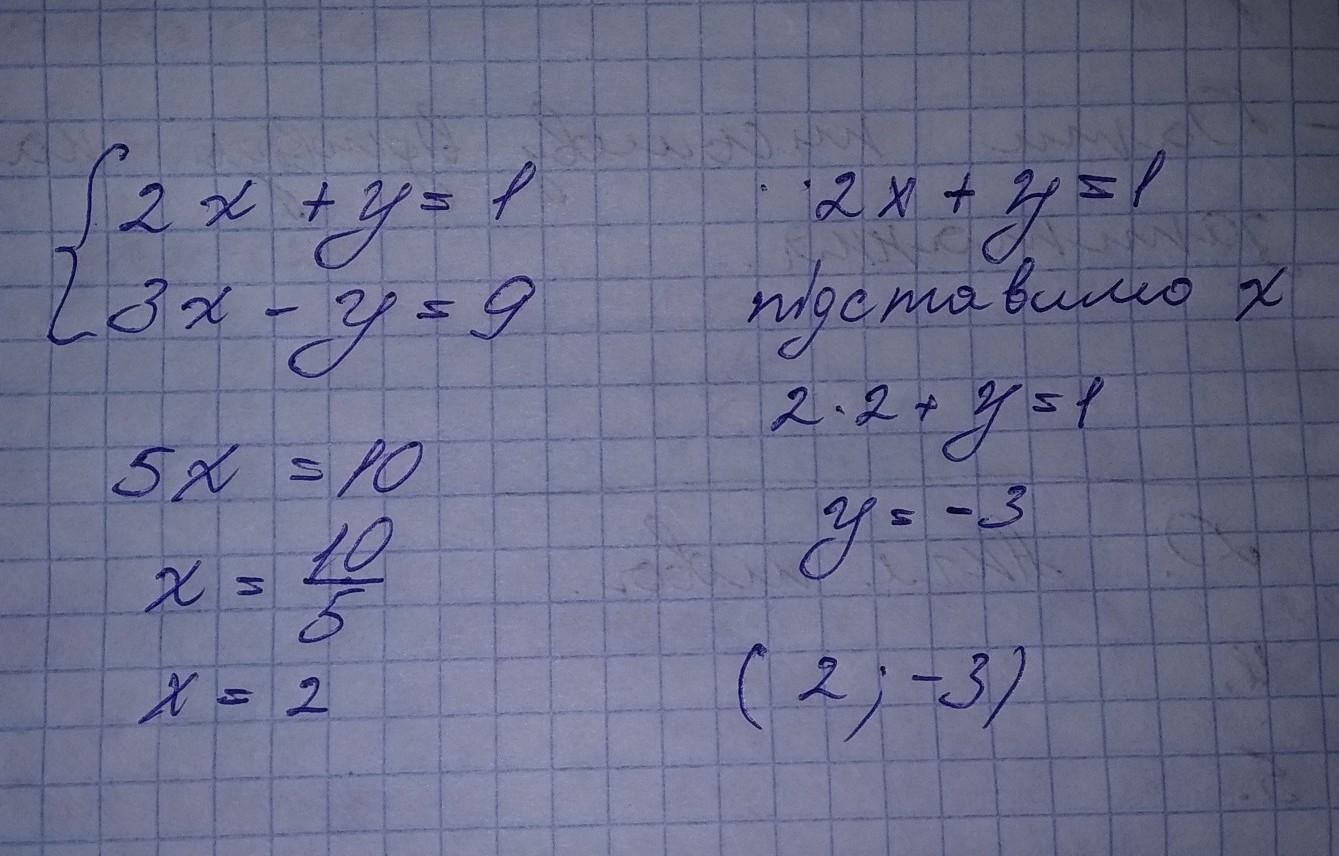 2x + y = 1
3x - y = 9
5x = 10
x = 10/5
x = 2
2x + y = 1
підставимо x
2·2 + y = 1
y = -3
(2; -3)